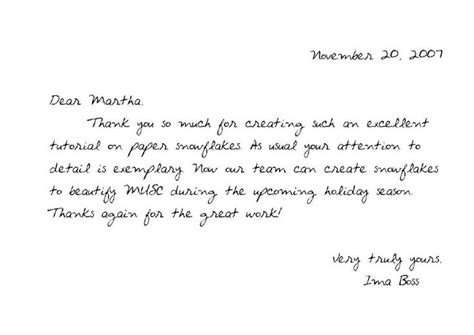 November 20, 2007
Dear Martha,
Thank you so much for creating such an excellent
tutorial on paper snowflakes. As usual your attention to
detail is exemplary. Now our team can create snowflakes
to beautify MUSC during the upcoming holiday season.
Thanks again for the great work!
Very truly yours,
Ima Boss